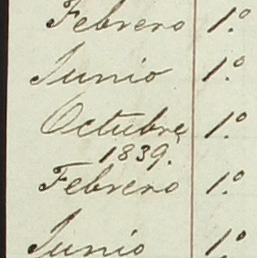 Febrero 1.º
Junio 1.º
Octubre 1.º
1839.
Febrero 1.º
Junio 1.º